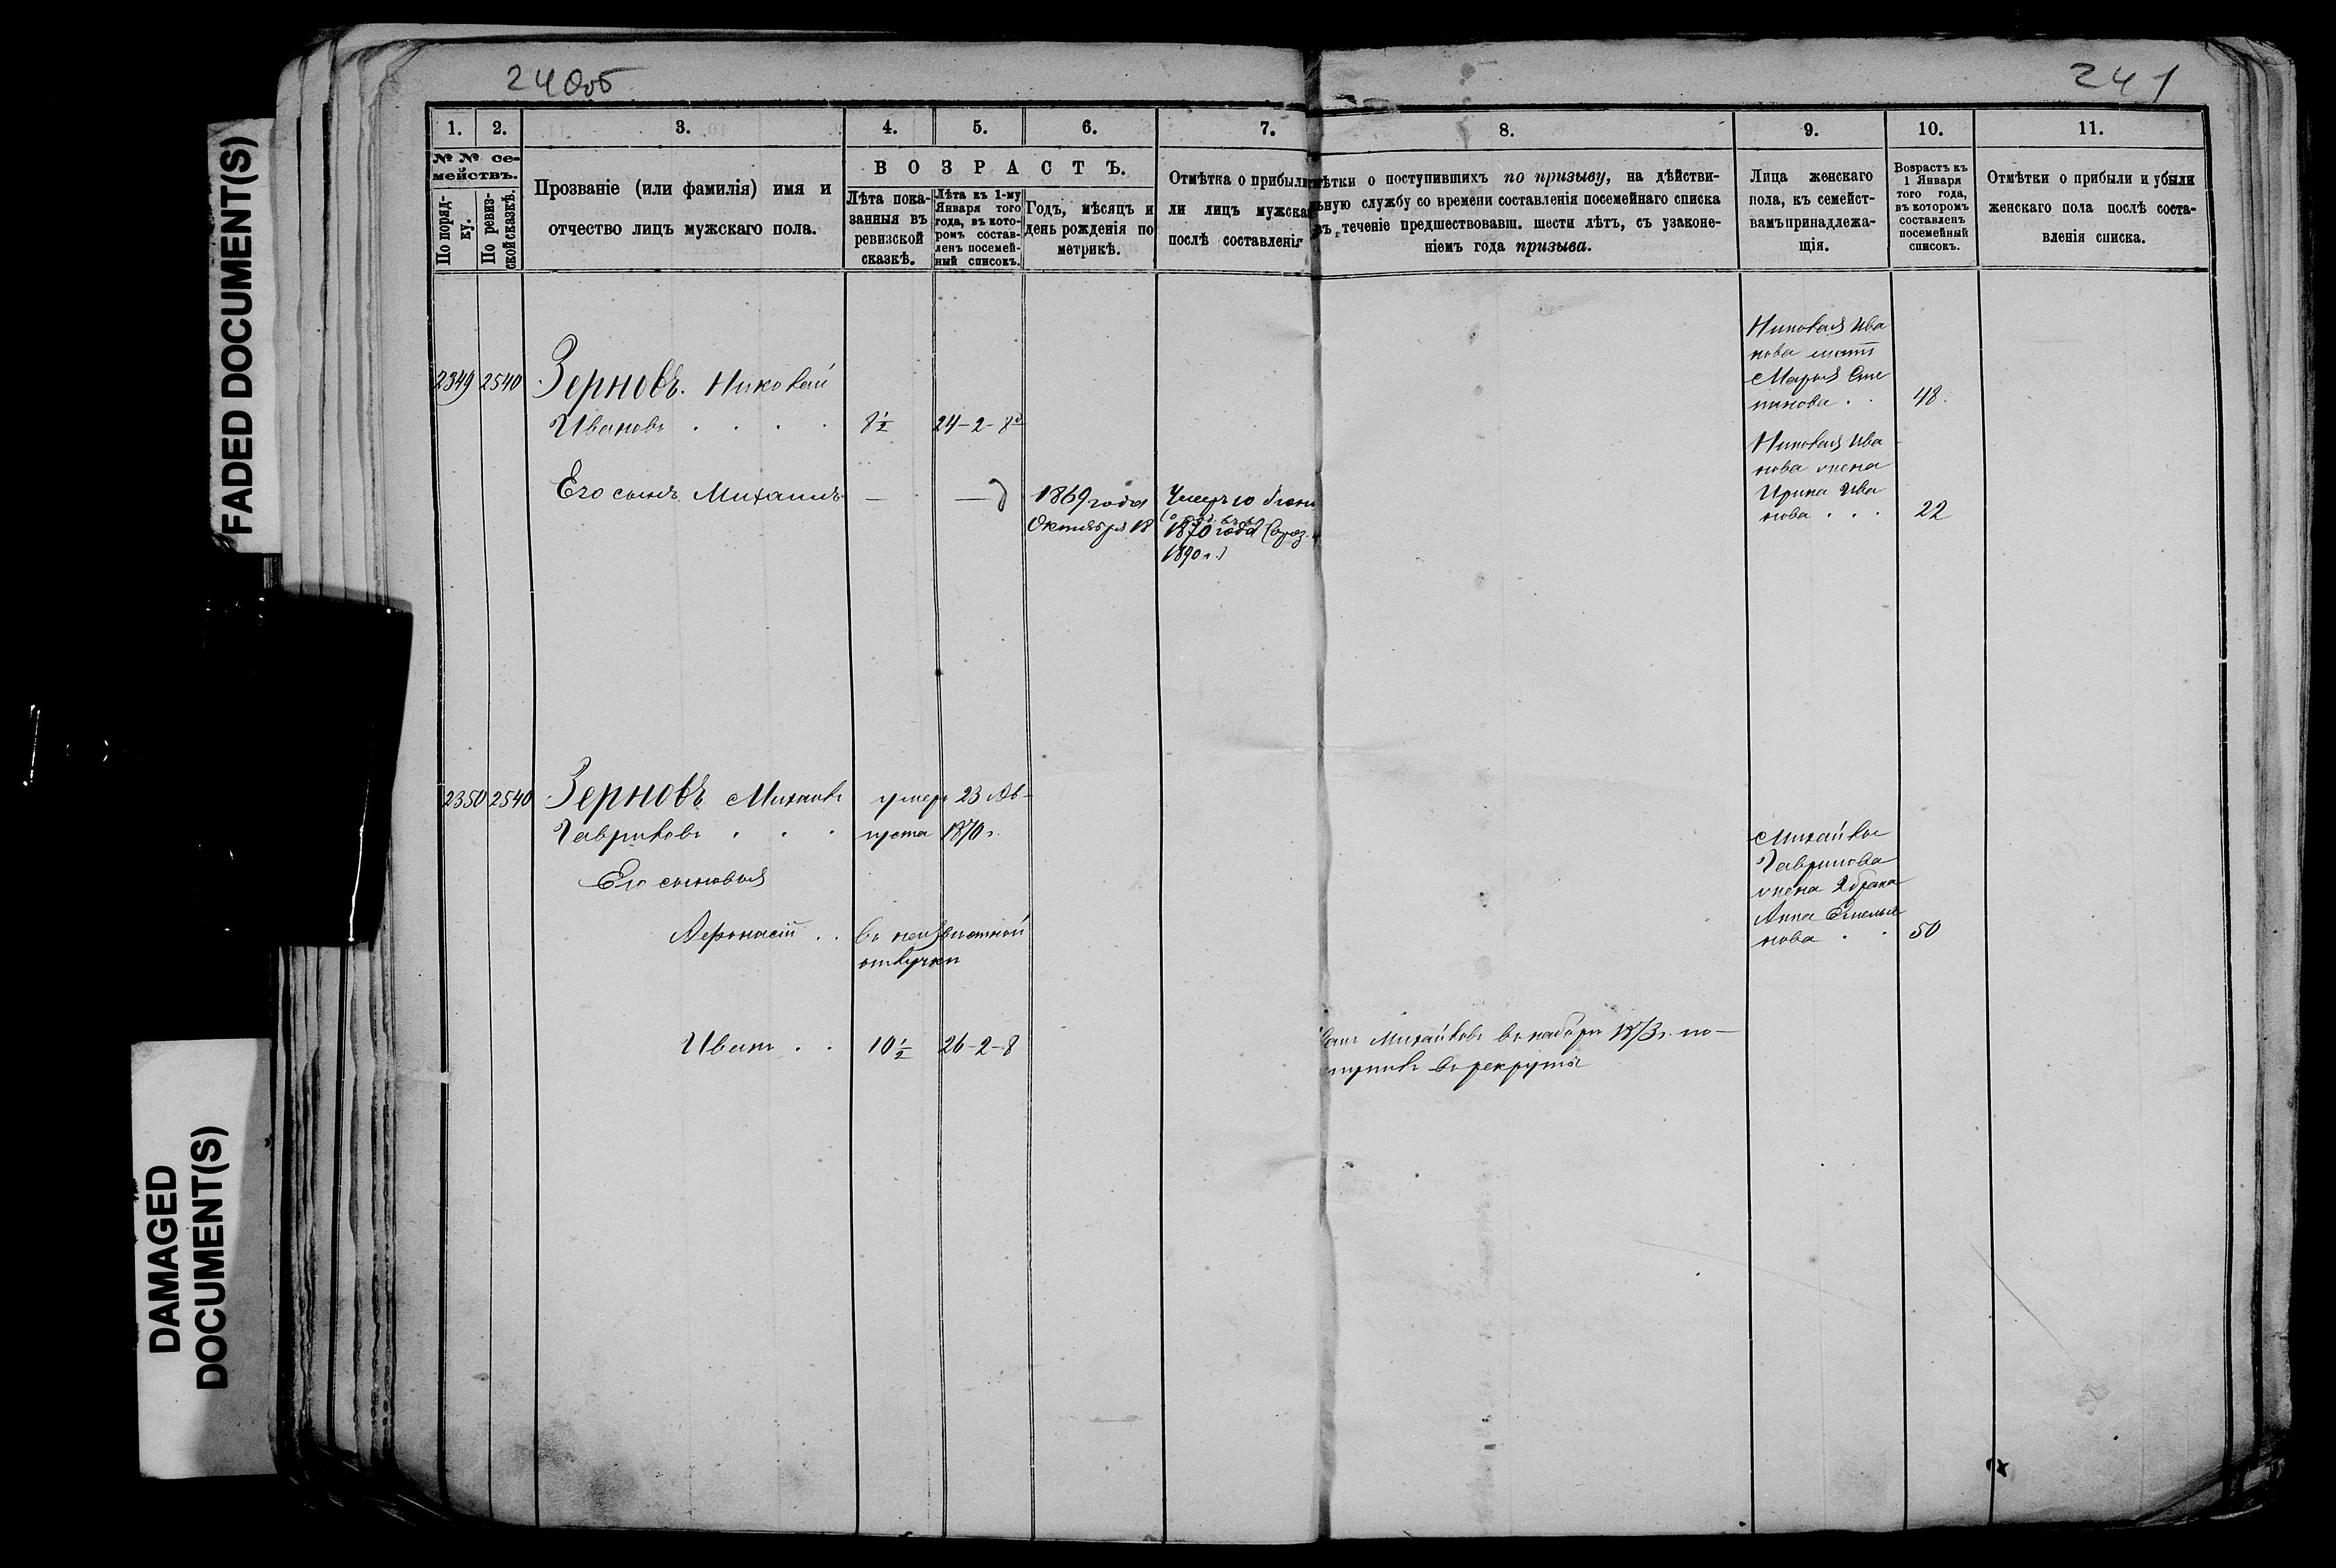 FADED DOCUMENT(S)
DAMAGED
DOCUMENT(S)
240об
241
1.
2.
3.
4.
5.
6.
7.
8.
9.
10.
11.
№ № се-
мействъ.
По поряд-
ку.
По ревиз-
ской сказкѣ.
Прозваніе (или фамилія) имя и
отчество лицъ мужскаго пола.
ВОЗРАСТЪ.
Лѣта пока-
занныя въ
ревизской
сказкѣ.
Лѣта къ 1-му
Января того
года, въ кото-
ромъ состав-
ленъ посемей-
ный списокъ.
Годъ, мѣсяцъ и
день рожденія по
метрикѣ.
Отмѣтка о прибыли
ли лицъ мужска
послѣ составленія
мѣтки о поступившихъ по призыву, на дѣйстви-
льную службу со времени составленія посемейнаго списка
въ теченіе предшествовавш. шести лѣтъ, съ узаконе-
ніемъ года призыва.
Лица женскаго
пола, къ семейст-
вамъ принадлежа-
щія.
Возрастъ къ
1 Января
того года,
въ которомъ
составленъ
посемейный
списокъ.
Отмѣтки о прибыли и убыли
женскаго пола послѣ соста-
вленія списка.
2349 2540 Зерновъ. Николай
Ивановъ . . . . 8½ 24-2-8
Его сынъ Михаилъ — —
1869 года
Октября 18
Умеръ 10 Іюн
1870 года
1890 г.)
Николая Ива
нова мать
Марья Сте
панова . . 48.
Николая Ива
нова жена
Ирина Ива
нова . . . 22
2350 2540 Зерновъ Михайлъ умеръ 23 Ав-
Гавриловъ . . . густа 1870 г.
Его сыновья
Афонасій . . въ неизвѣстной
отлучкѣ
Иванъ . . 10½ 26-2-8
ванъ Михайловъ въ наборъ 1873 г. по-
ступилъ въ рекруты
Михайлы
Гаврилова
жена 2 брака
Анна Емелья
нова . . 50